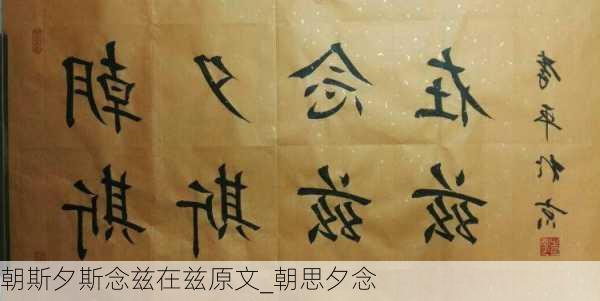 朝斯
夕斯
念兹
在兹
朝斯夕斯念兹在兹原文_朝思夕念